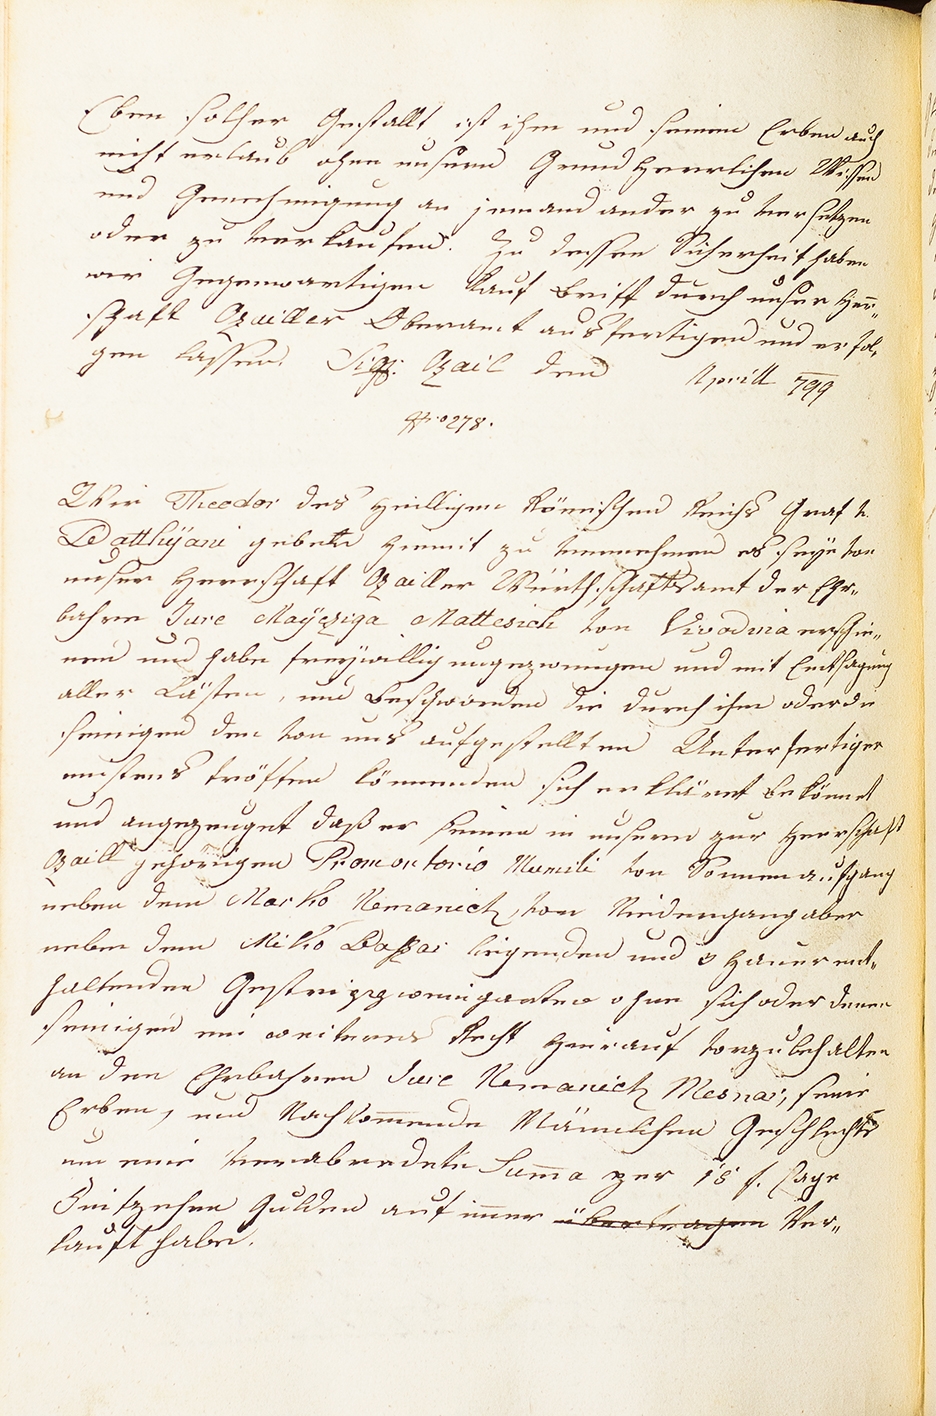 Eben solcher Gestallt ist ihm und seinen Erben auch
nicht erlaub ohne unsern Grundherrlichen Wissen
und Genehmigung an jemand ander zu versetzen
oder zu verkaufen. Zu dessen Sicherheit haben
wir Gegenwartigen Kauf Briff durch unser Herr„
schaft Ozailler Oberamt ausfertigen und erfol„
gen lassen. Sig: Ozail den Aprill 799
No 278.
Wir Theodor des Heilligen Römischen Reichs Graf v.
Batthÿani geben hiemit zu vernehmen es seye von
unser Herrschaft Ozailler Würthschaftsamt der Ehr„
bahre Jure Maÿcziga Mattesich von Vivodina erschie„
nen und habe freÿwillig ungezwungen und mit Entsagung
aller Lästen, und Beschwörden die durch ihm oder die
seinigen den von uns aufgestellten Unterfertiger
mistens tröffen könnenden sich erkläret bekönnet
und angezeuget daß er seinen in unsern zur Herrschaft
Ozaill gehörigen Promontorio Mumili von Sonnenaufgang
neben dem Marko Nemanich, von Niedergang aber
neben dem Miko Bassar liegenden und 3 Hauer ent„
haltenden Gestripzweingarten ohne sich oder denen
seinigen ein weiteres Recht hierauf vorzubehalten
an den Ehrbahren Jure Nemanich Mesnar, seine
Erben, und Nachkom̄ende Männlichen Geschlechts
um eine verabredete Sum̄a per 15 f. sage
Fünfzehen Gulden auf immer übertragen Ver„
kauft habe.